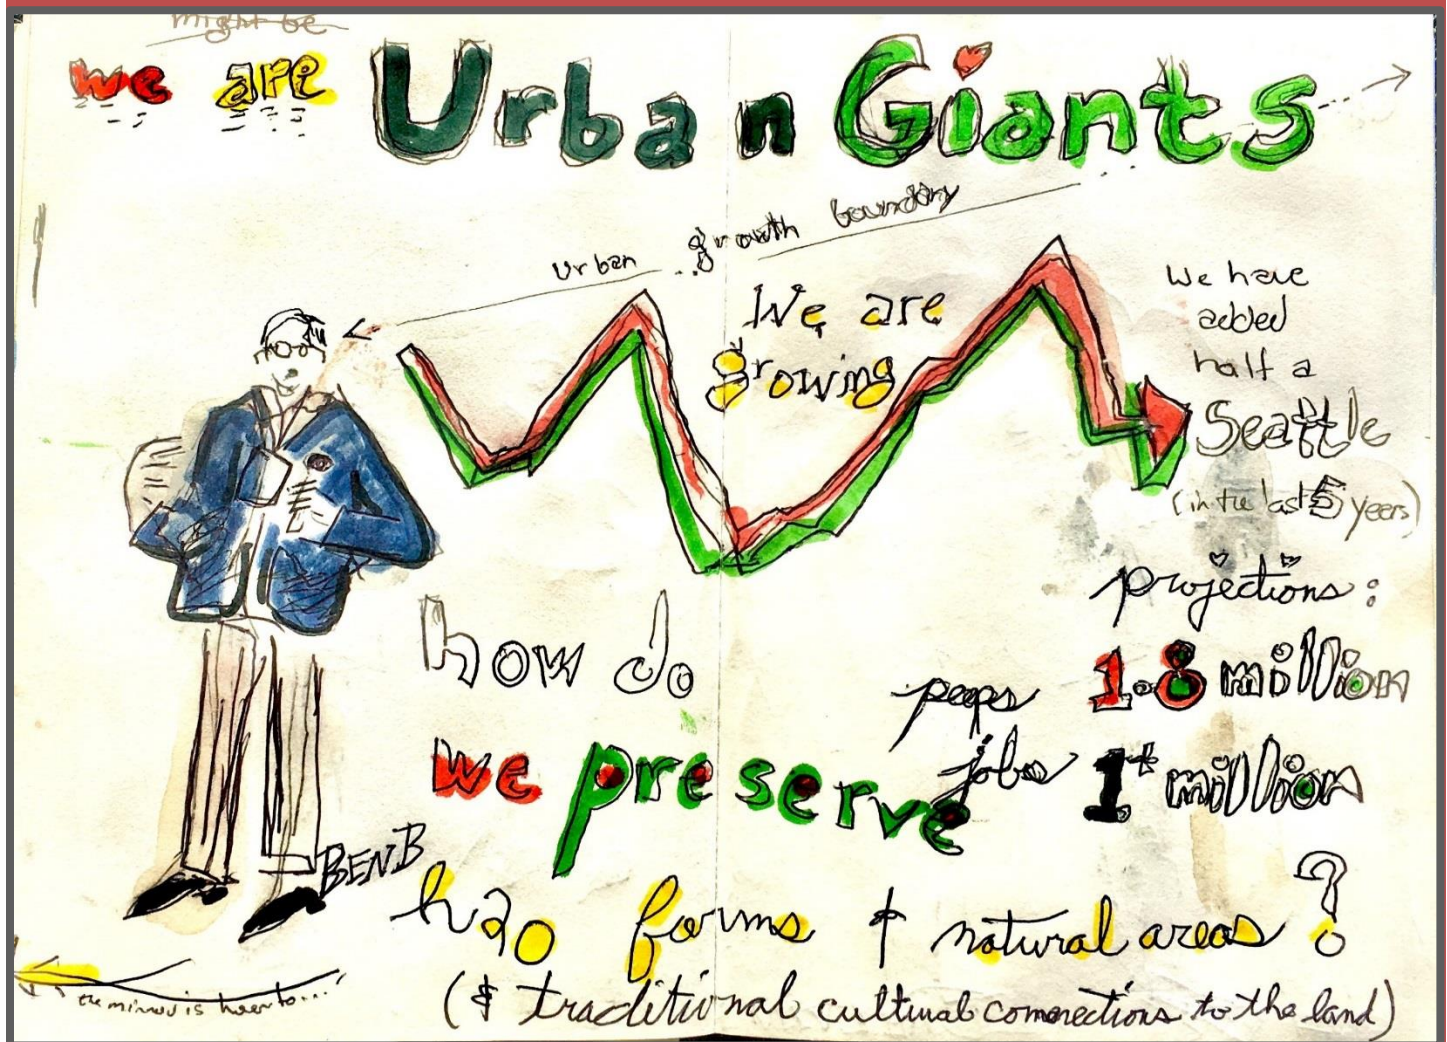 might be
we are Urban Giants
urban growth boundary
We are
growing
We have
added
half a
Seattle
(in the last 5 years)
projections:
peeps 1.8 million
jobs 1+ million
how do
we preserve
h2o farms & natural areas?
(& traditional cultural connections to the land)
BEN B
the minnow is